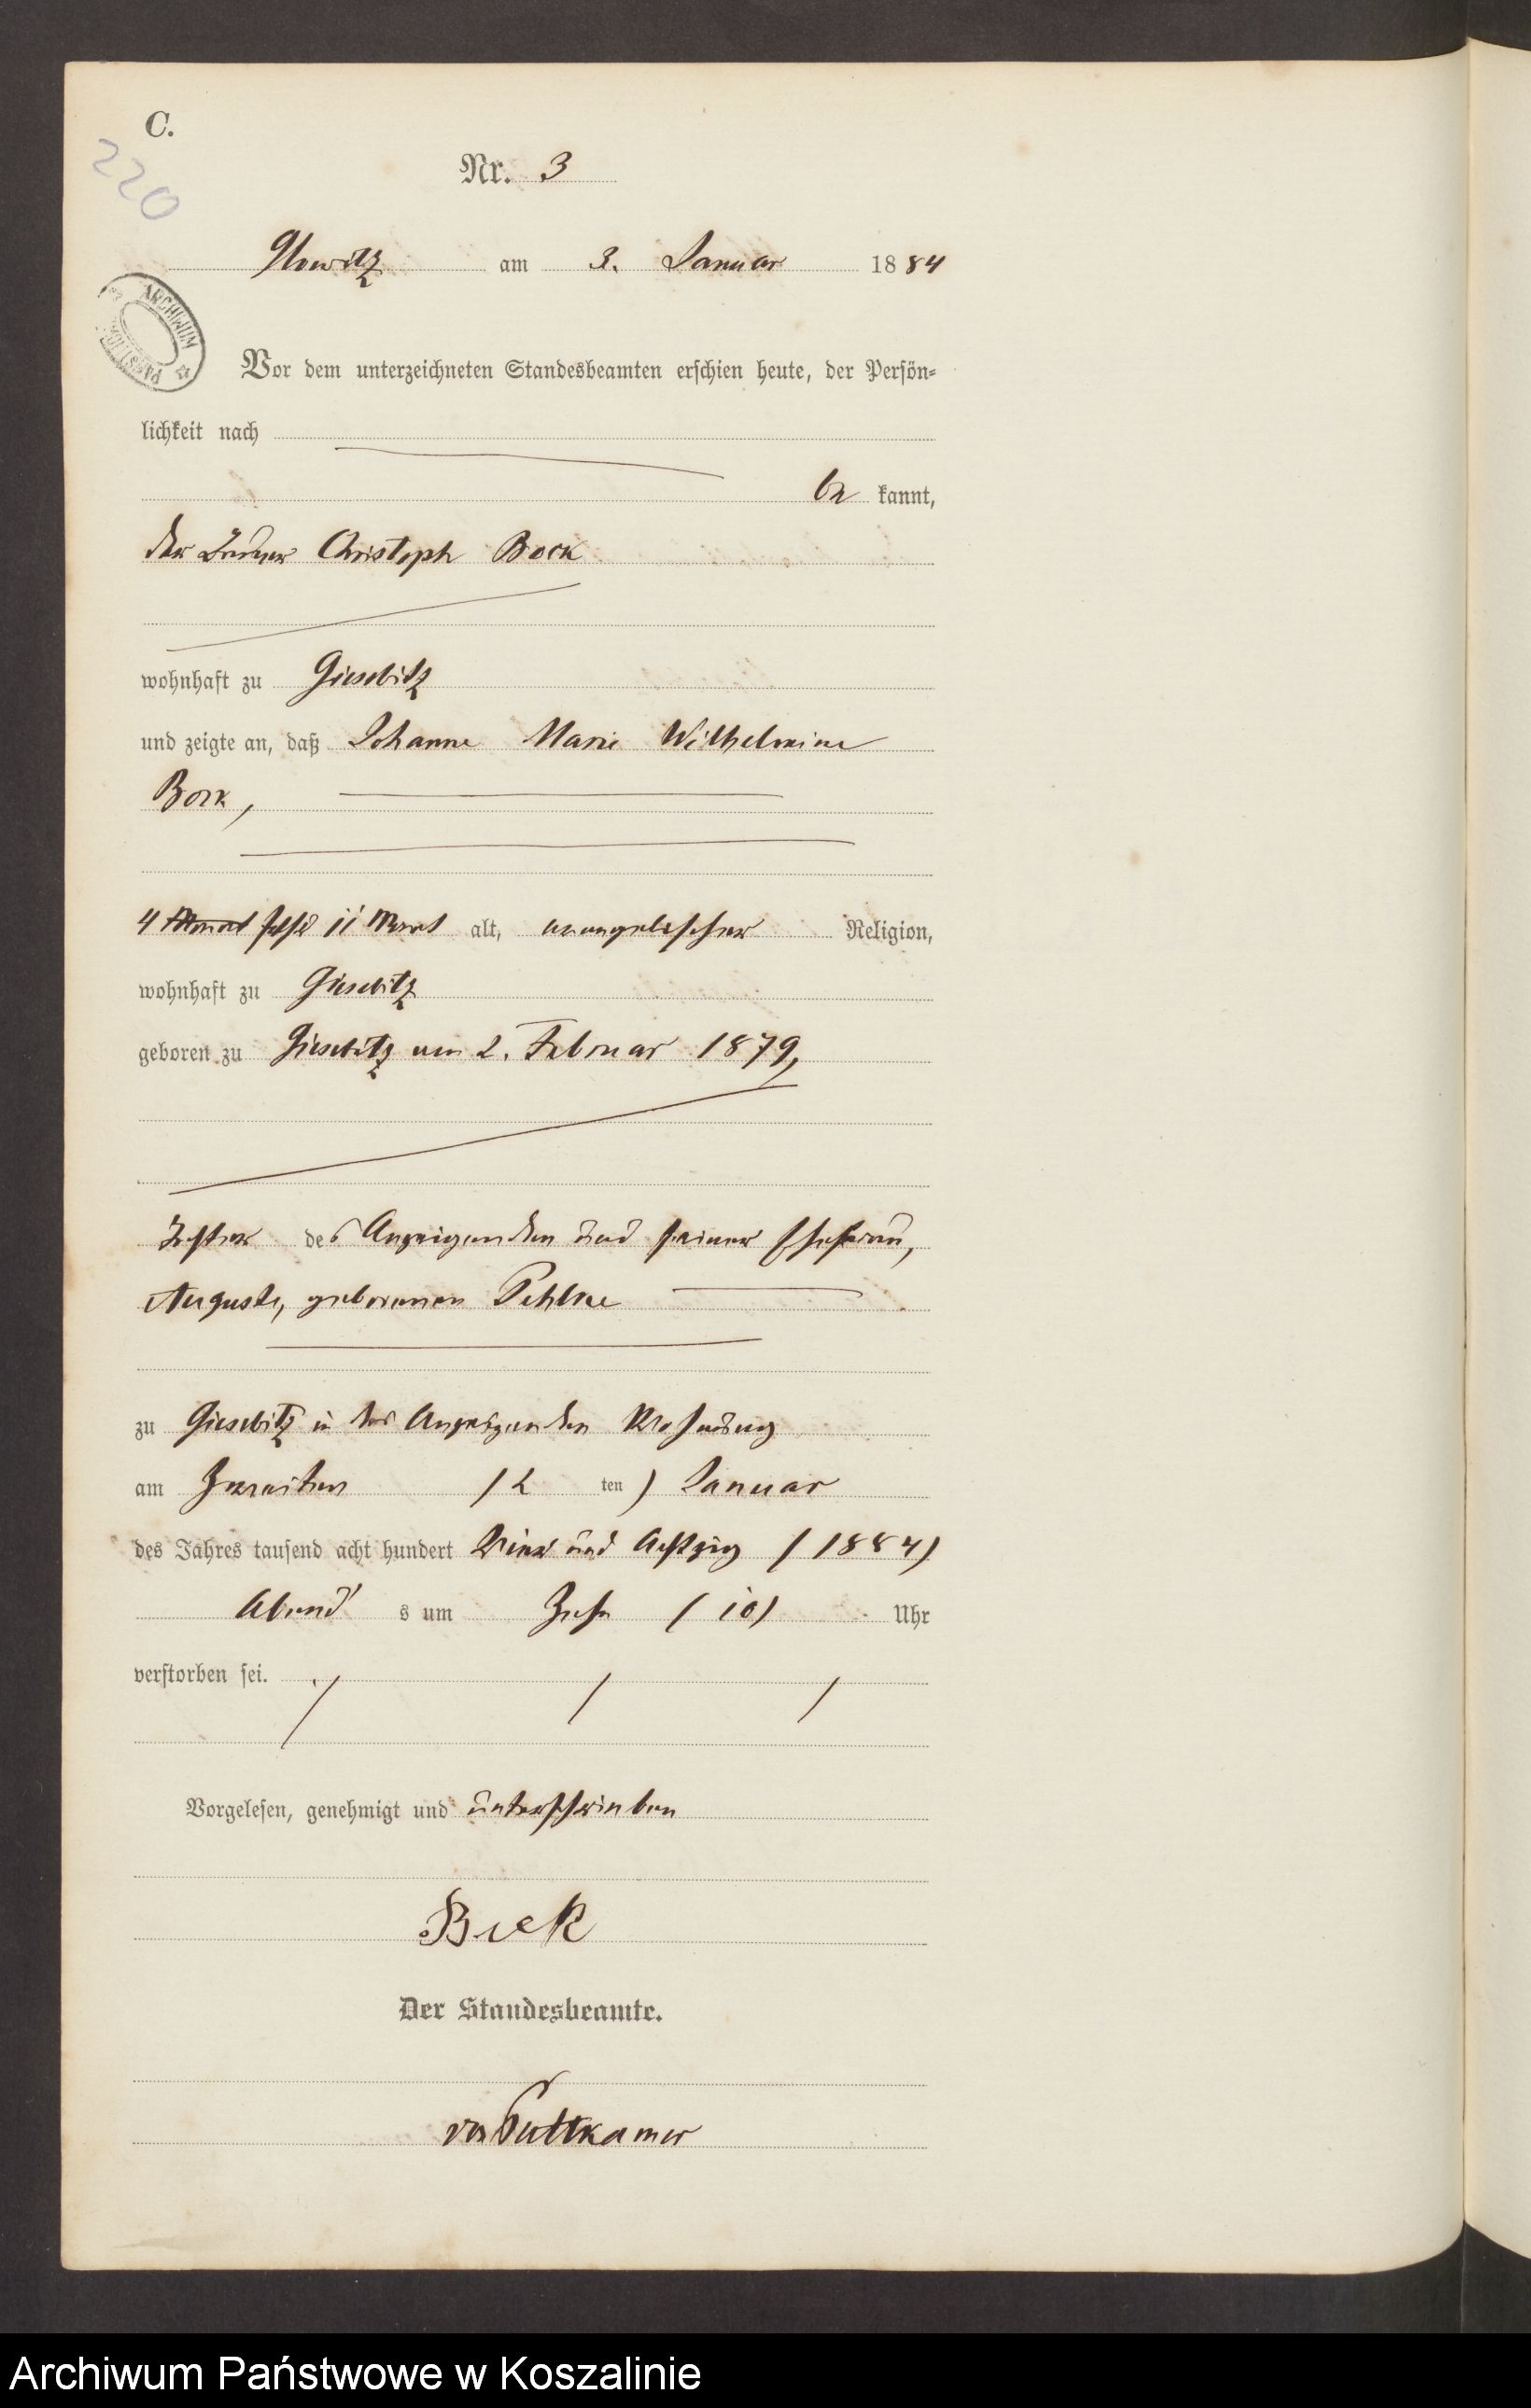 C.
220
Nr. 3
Glowitz am 3. Januar 1884
ARCHIWUM
Vor dem unterzeichneten Standesbeamten erschien heute, der Persön-
lichkeit nach
be kannt,
der Christoph Bock
wohnhaft zu Giesebitz
und zeigte an, daß Johanne Marie Wilhelmine
Bock,
4 Jahr 11 Monat alt, evangelischer Religion,
wohnhaft zu Giesebitz
geboren zu Giesebitz am 2. Februar 1879,
Tochter des Anzeigenden und seiner Ehefrau,
Auguste, geborenen Pehlke
zu Giesebitz in des Anzeigenden Wohnung
am Zweiten (2 ten) Januar
des Jahres tausend acht hundert Vier und Achtzig (1884)
Abend s um Zehn (10) Uhr
verstorben sei.
Vorgelesen, genehmigt und unterschrieben
Bock
Der Standesbeamte.
von Puttkamer
Archiwum Państwowe w Koszalinie